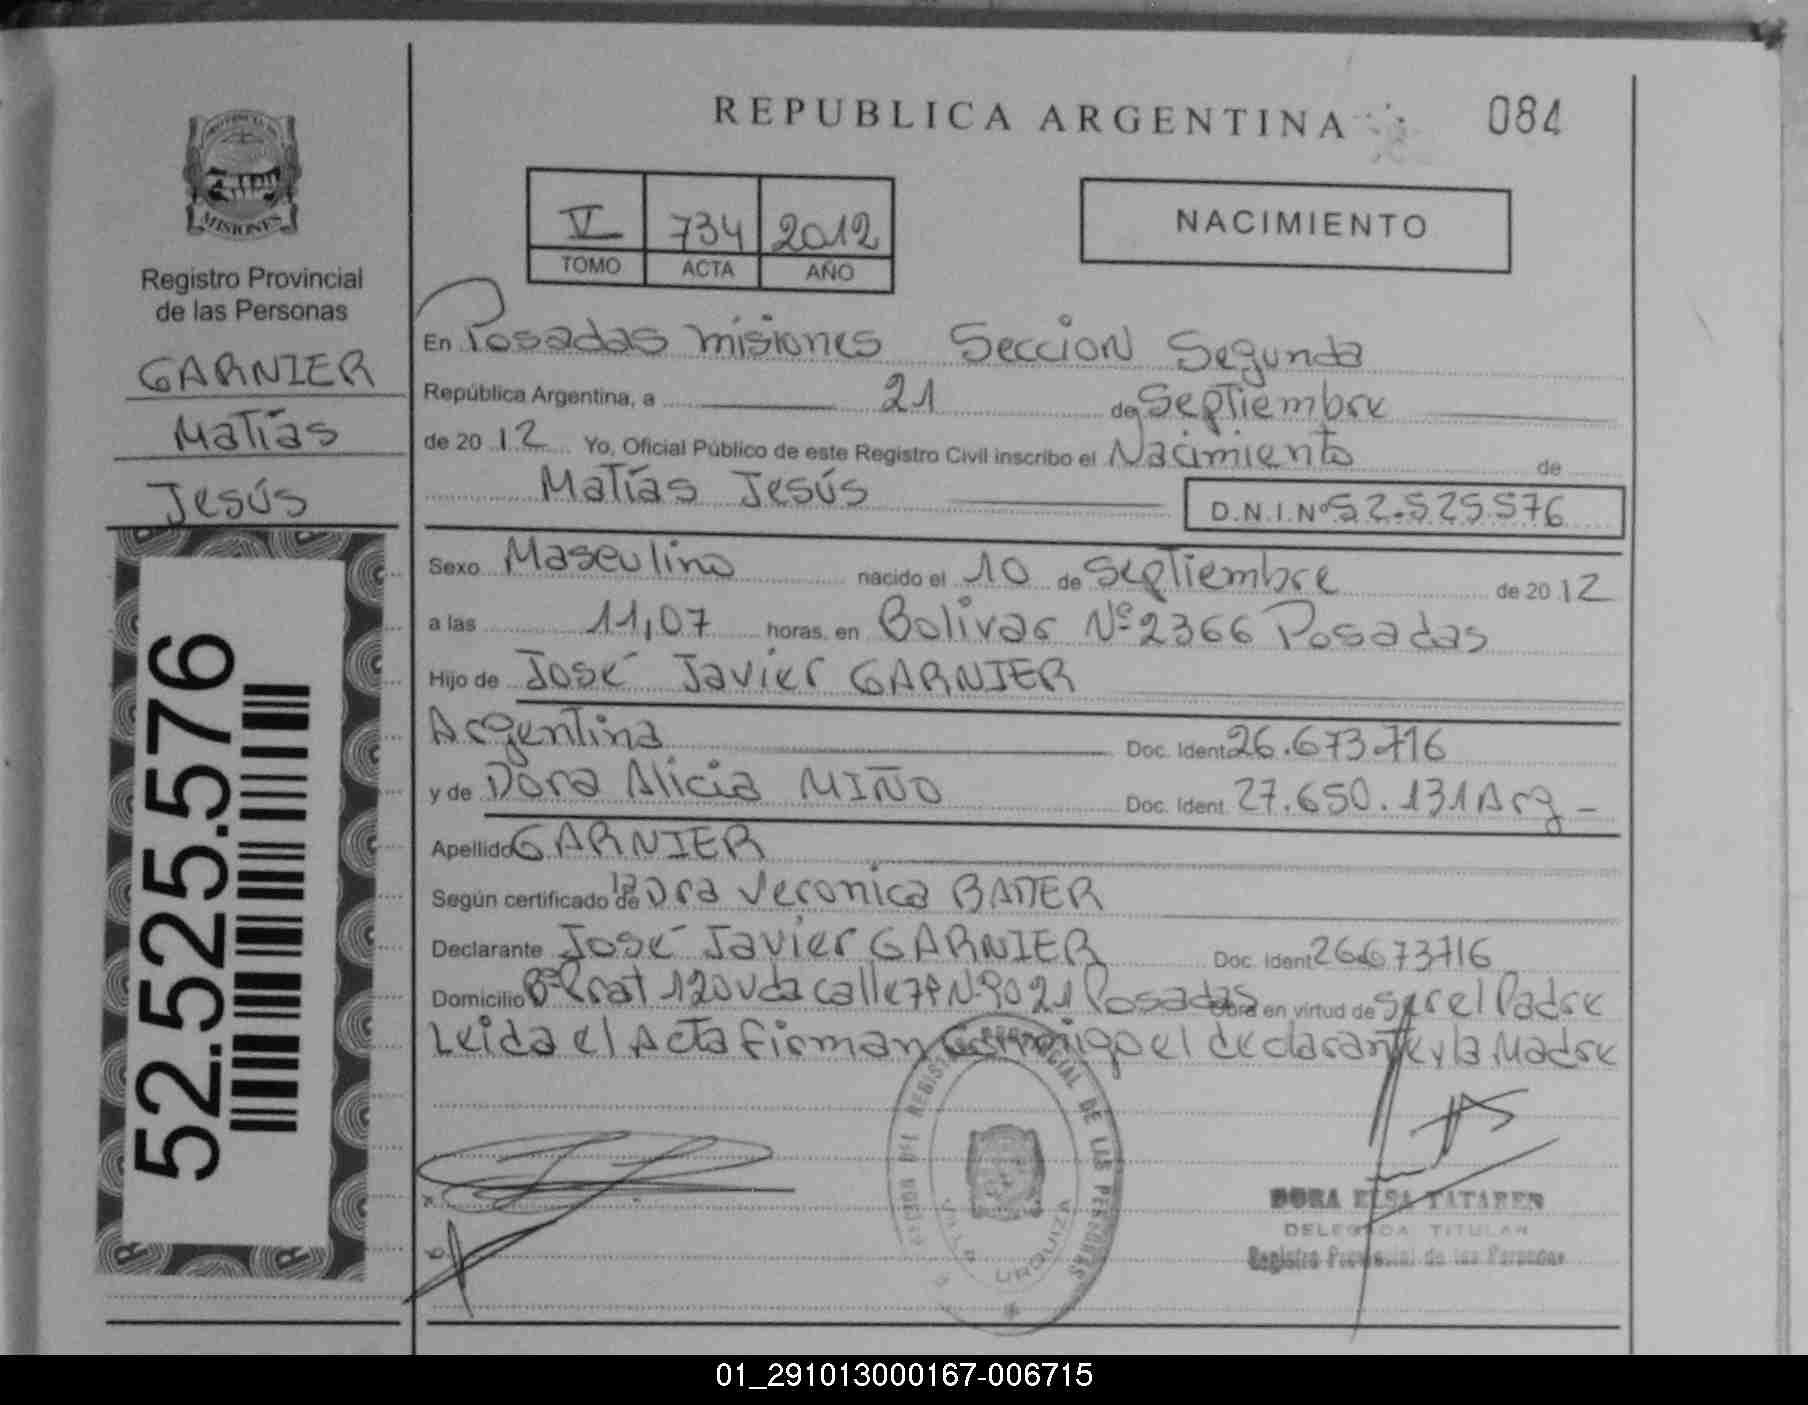 REPUBLICA ARGENTINA
084
MISIONES
Registro Provincial
de las Personas
GARNIER
Matías
Jesús
52.525.576
V 734 2012
TOMO ACTA AÑO
NACIMIENTO
En Posadas Misiones Seccion Segunda
República Argentina, a 21 de Septiembre
de 2012 Yo, Oficial Público de este Registro Civil inscribo el Nacimiento de
Matías Jesús D.N.I.Nº 52.525.576
Sexo Masculino nacido el 10 de Septiembre de 2012
a las 11,07 horas, en Bolivar Nº 2366 Posadas
Hijo de José Javier GARNIER
Argentina Doc. Ident. 26.673.716
y de Dora Alicia MIÑO Doc. Ident. 27.650.131 Arg
Apellido GARNIER
Según certificado de la Dra Veronica
Declarante José Javier GARNIER Doc. Ident 26673716
Domicilio Bº Prat 120 Vda calle Posadas Obra en virtud de ser el Padre
Leida el Acta firman conmigo el declarante y la Madre
REGISTRO PROVINCIAL DE LAS PERSONAS
VILLA URQUIZA
DORA ELSA TATAREN
DELEGADA TITULAR
Registro Provincial de las Personas
01_291013000167-006715